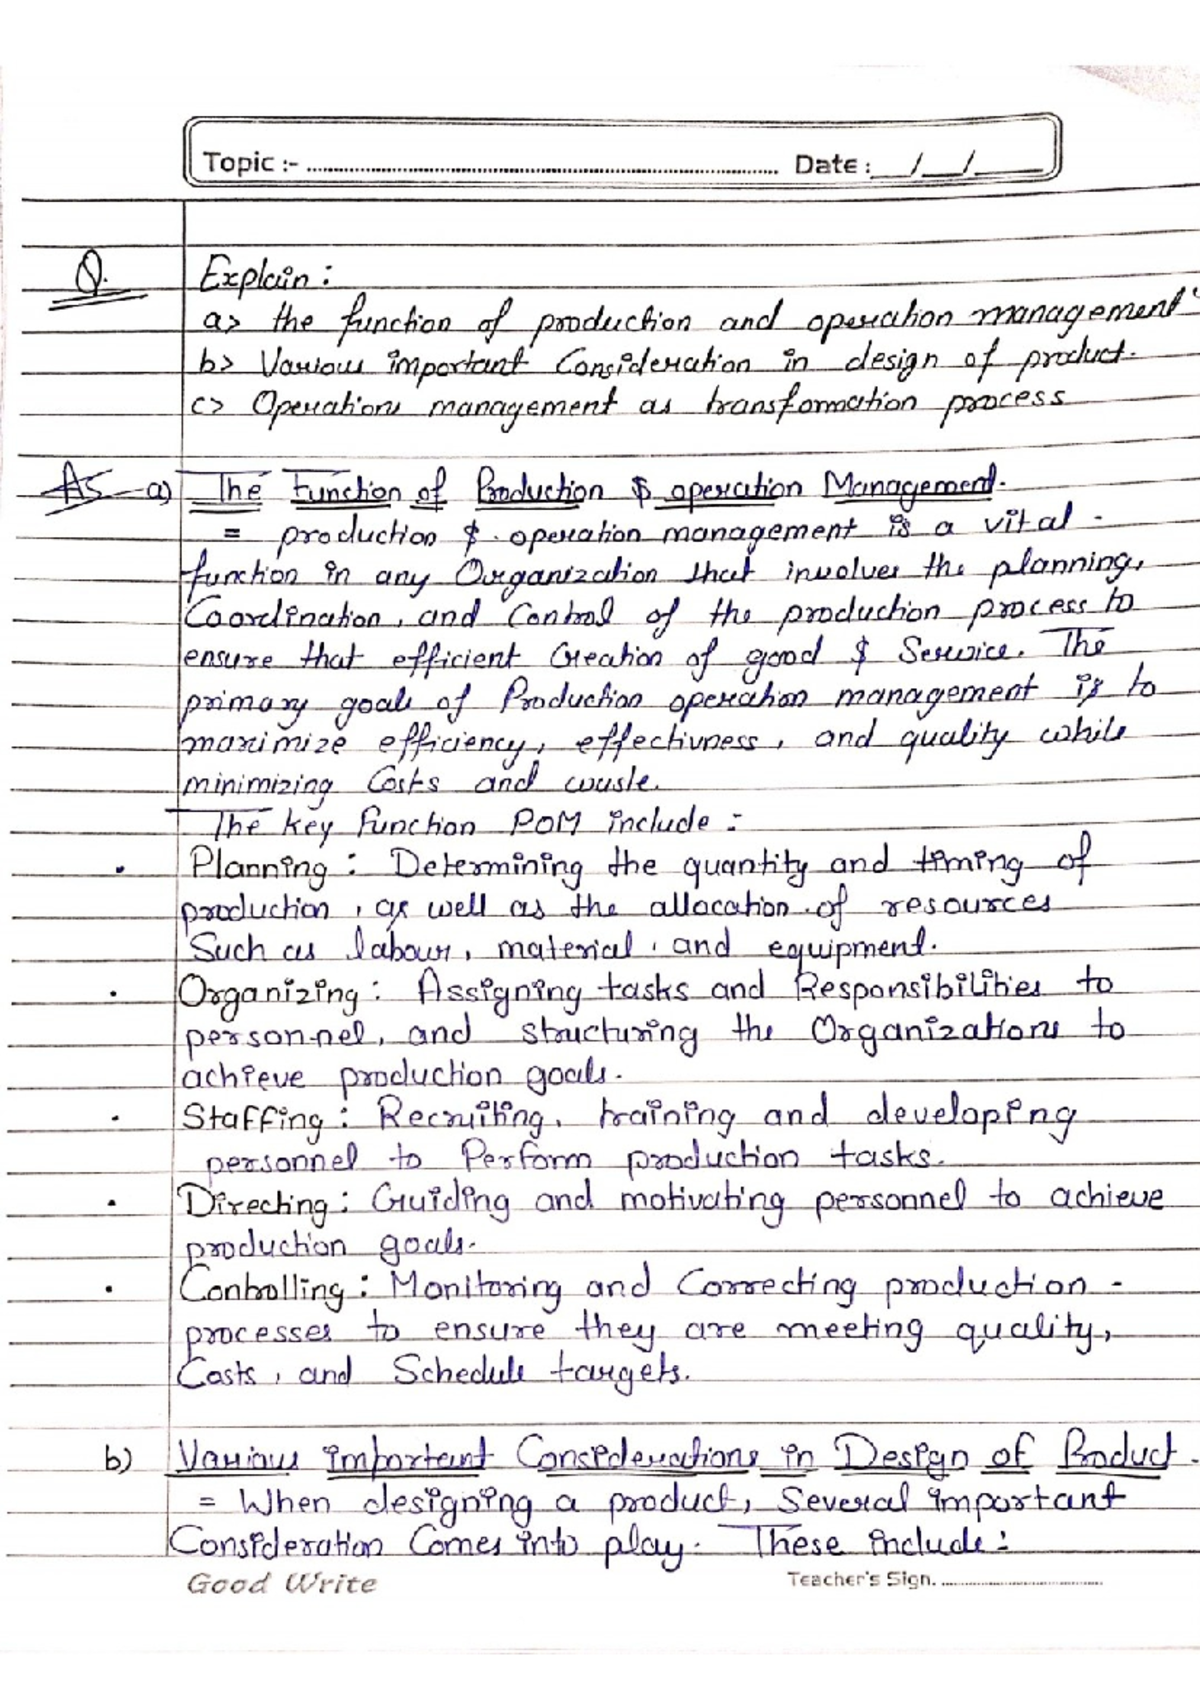 Topic :- ........................ Date : __/__/____
Q. Explain :
a> the function of production and operation management
b> Various important Consideration in design of product.
c> Operations management as transformation process
AS a) The Function of Production & operation Management.
= production & operation management is a vital -
function in any Organization that involves the planning,
Coordination, and Control of the production process to
ensure that efficient Creation of good & Service. The
primary goals of Production operation management is to
maximize efficiency, effectivness, and quality while
minimizing Costs and waste.
The key function POM include :
• Planning : Determining the quantity and timing of
production, as well as the allocation of resources
Such as labour, material, and equipment.
• Organizing : Assigning tasks and Responsibilities to
person-nel, and structuring the Organizations to
achieve production goals.
• Staffing : Recruiting, training and developing
personnel to Perform production tasks.
• Directing : Guiding and motivating personnel to achieve
production goals.
• Controlling : Monitoring and Correcting production -
processes to ensure they are meeting quality,
Costs, and Schedule targets.
b) Various important Considerations in Design of Product.
= When designing a product, Several important
Consideration Comes into play. These include :
Good Write Teacher's Sign. ........................